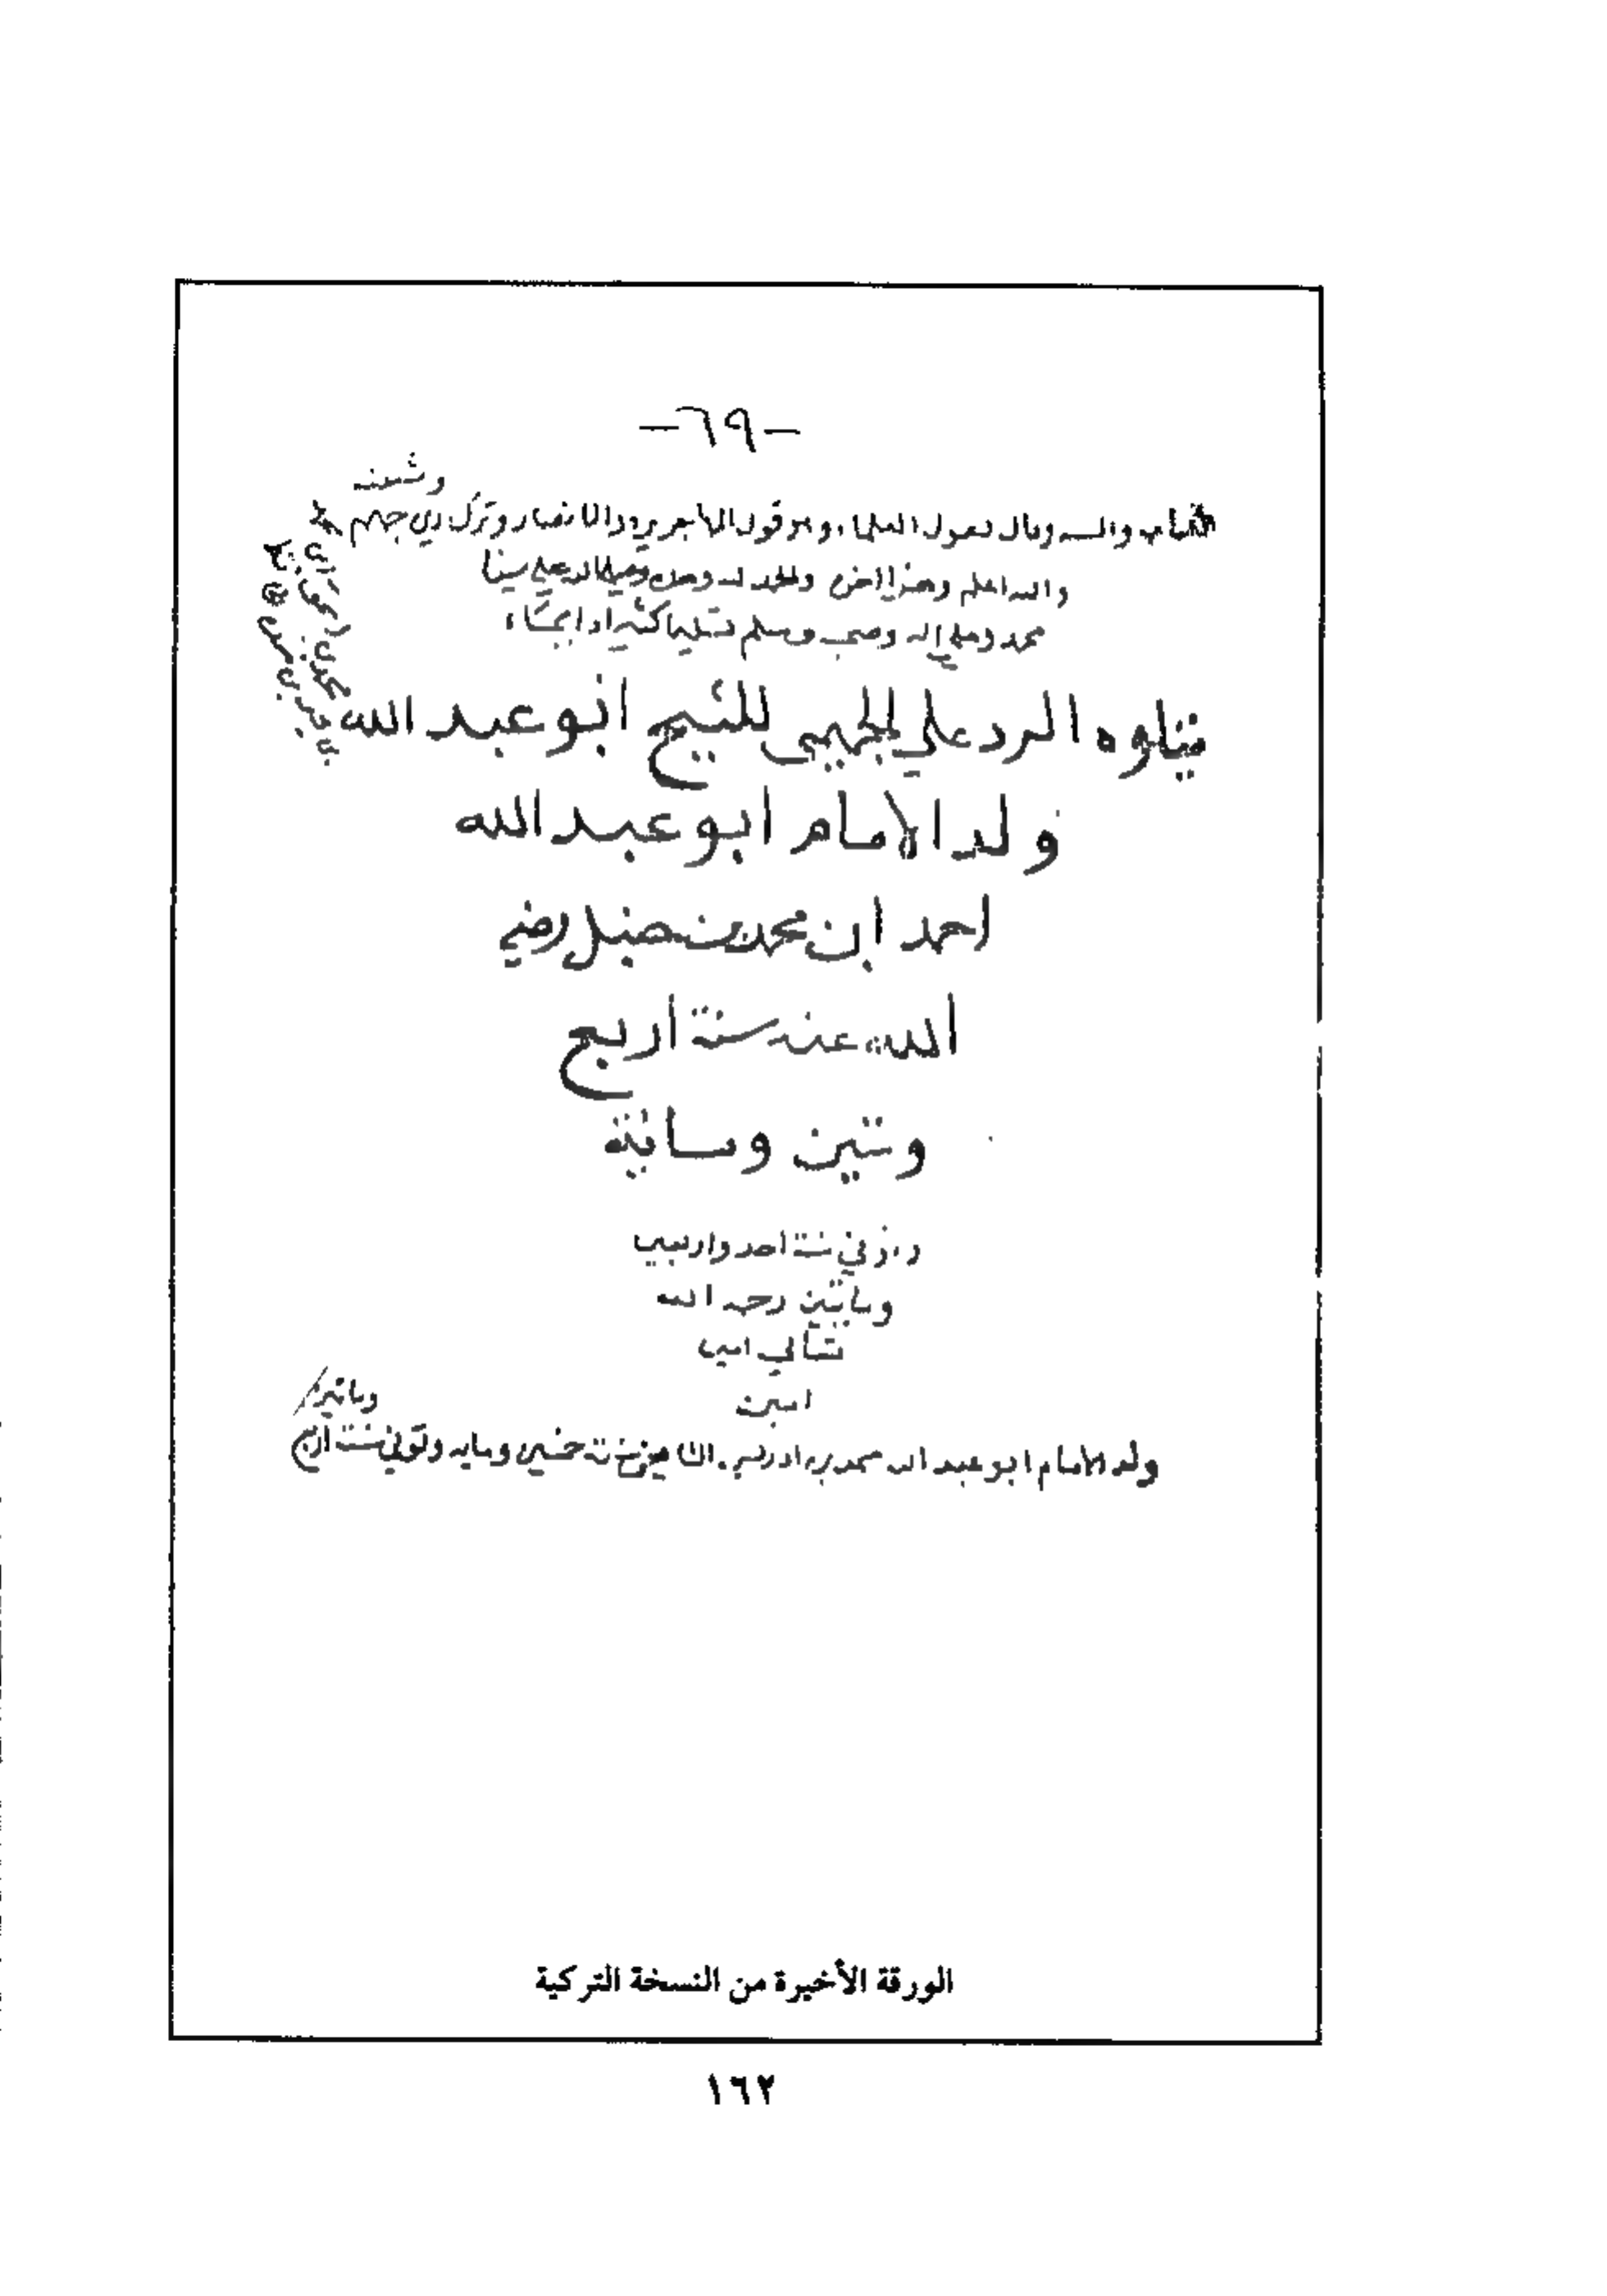 -٦٩-
وشيعته
الكتاب والسنه وقال بقول العلماء وهو قول المهاجرين والانصار وترك دين جهم
والله اعلم وهذا اخره والحمد لله وحده وصلى الله على سيدنا
محمد وعلى اله وصحبه وسلم تسليما كثيرا دايما
يتلوه الرد علي الجهمي للشيخ ابو عبد الله
ولد الامام ابو عبد الله
احمد ابن محمد بن حنبل رضي
الله عنه سنة أربع
وستين ومائة
وتوفي سنة احد واربعين
ومائتين رحمه الله
تعالي امين
امين
ومائتين
ولد الامام ابو عبد الله محمد بن ادريس الشافعي سنة خمسين ومايه وتوفي سنة اربع
الورقة الأخيرة من النسخة التركية
١٦٢